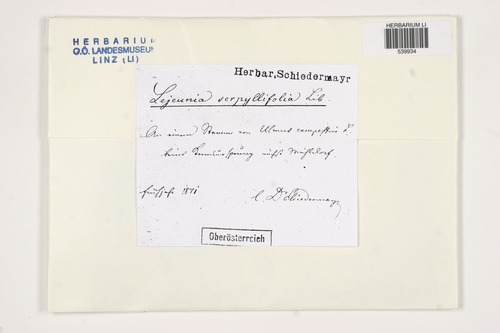 HERBARIUM
O.Ö. LANDESMUSEUM
LINZ (LI)
HERBARIUM LI
539934
Herbar, Schiedermayr
Lejeunia serpyllifolia Lib.
An einem Stamm von Ulmus campestris
beim nächst Mühldorf.
1871
C. Dr Schiedermayr
Oberösterreich